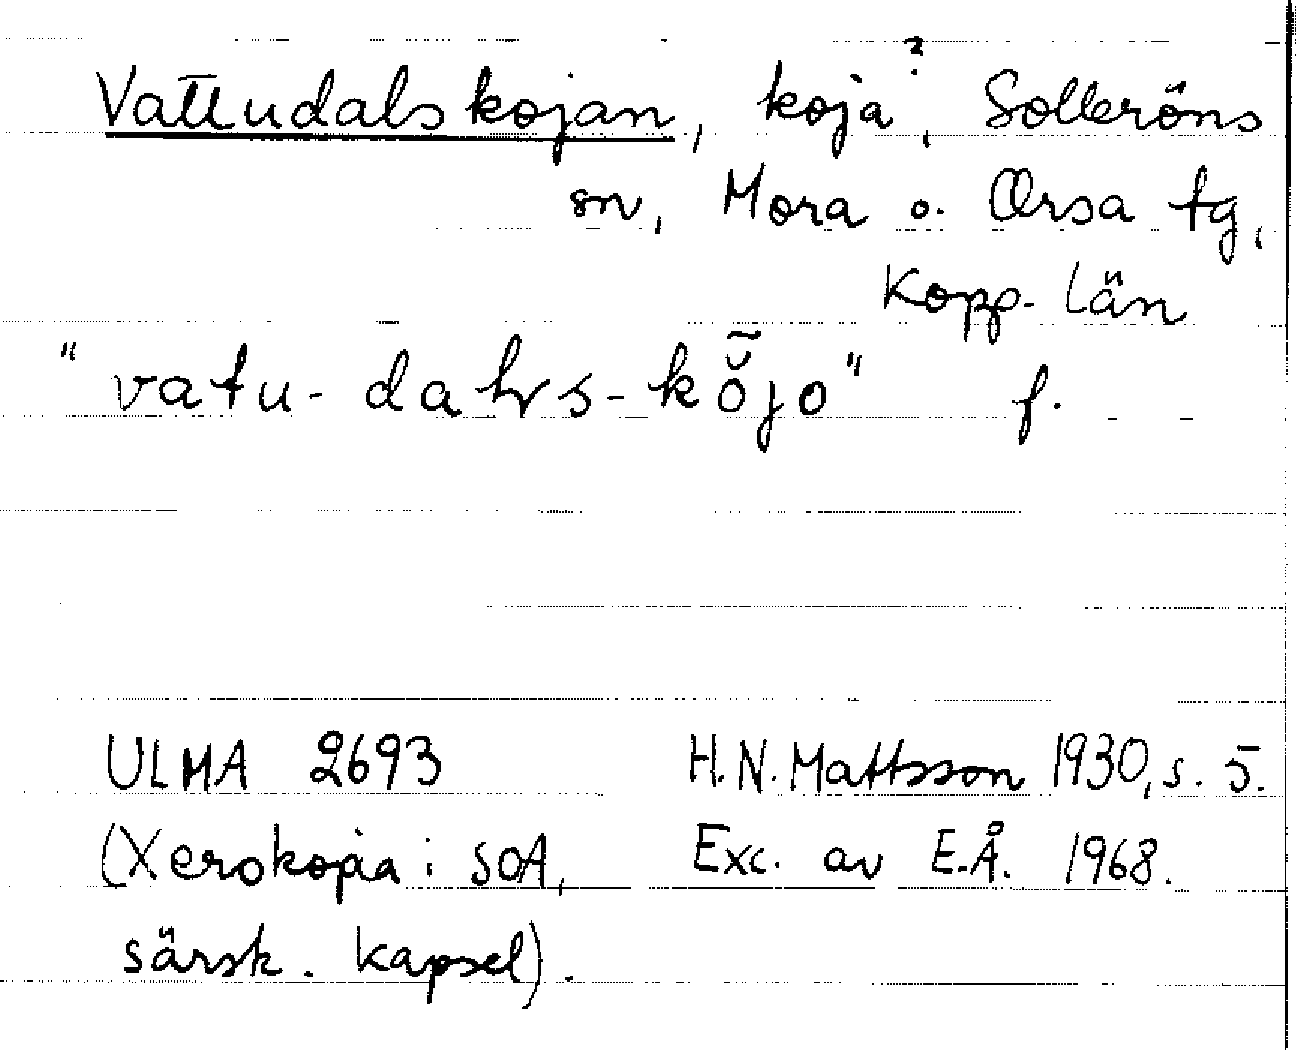 Vattudalskojan, koja?, Solleröns
sn, Mora o. Orsa tg,
Kopp. län
"vatu-dahrs-kö̆̃jo" f.
ULMA 2693 H.N. Mattsson 1930, s. 5.
(Xerokopia i SOA, Exc. av E.Å. 1968.
särsk. kapsel).